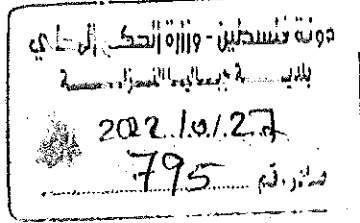 دولة فلسطين - وزارة الحكم المحلي
بلديــــة جباليا النزلــــة
2022/٥/27
صادر رقم 795